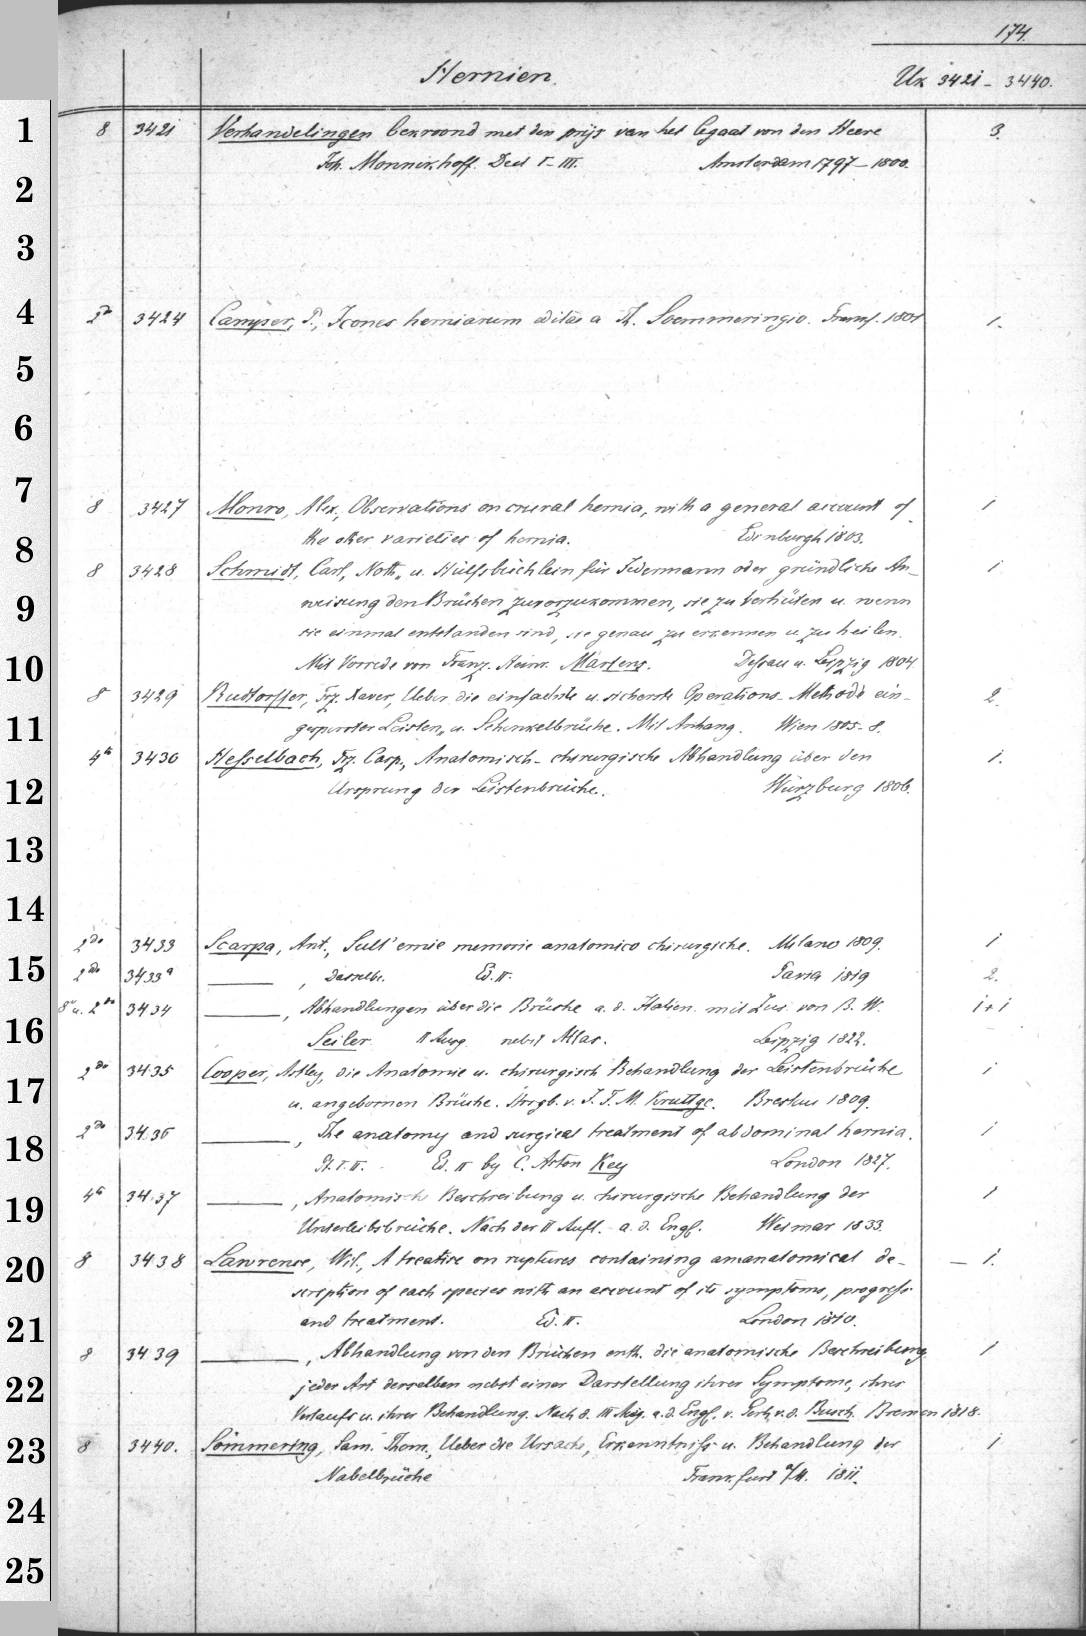 174.
Hernien. Ux 3421 - 3440.
1
8 3421 Verhandelingen bekroond met den prijs van het legaat von den Heere 3.
Joh. Monnikhoff. Deel I-III. Amsterdam 1797-1800.
2
3
4
2° 3424 Camper, P., Icones herniarum editae a Th. Soemmeringio. Francf. 1801 1.
5
6
7
8 3427 Monro, Alex., Observations on crural hernia, with a general account of 1
the other varieties of hernia. Edinburgh 1803.
8
8 3428 Schmidt, Carl, Noth- u. Hülfsbüchlein für Jedermann oder gründliche An- 1
9
weisung den Brüchen zuvorzukommen, sie zu verhüten u. wenn
sie einmal entstanden sind, sie genau zu erkennen u. zu heilen.
10
Mit Vorrede von Franz Heinr. Martens. Dessau u. Leipzig 1804
8 3429 Rudtorffer, Frz. Xaver, Ueber die einfachste u. sicherste Operations-Methode ein- 2.
11
gesperrter Leisten- u. Schenkelbrüche. Mit Anhang. Wien 1805-8.
4to 3430 Hesselbach, Frz. Casp., Anatomisch-chirurgische Abhandlung über den 1.
12
Ursprung der Leistenbrüche. Würzburg 1806.
13
14
2do 3433 Scarpa, Ant., Sull' ernie memorie anatomico chirurgiche. Milano 1809. 1
15
2do 3433a ———, Dasselbe. Ed. II. Pavia 1819 2.
8° u. 2do 3434 ———, Abhandlungen über die Brüche a. d. Italien. mit Zus. von B. W. 1+1
16
Seiler. II Ausg. nebst Atlas. Leipzig 1822.
2do 3435 Cooper, Astley, die Anatomie u. chirurgisch Behandlung der Leistenbrüche 1
17
u. angebornen Brüche. Hrsgb. v. J. F. M. Kruttge. Breslau 1809.
2do 3436 ———, The anatomy and surgical treatment of abdominal hernia. 1
18
Pt. I. II. Ed. II by C. Aston Key London 1827.
4to 3437 ———, Anatomische Beschreibung u. chirurgische Behandlung der 1
19
Unterleibsbrüche. Nach der II Aufl. a. d. Engl. Weimar 1833.
8 3438 Lawrence, Wil., A treatise on ruptures containing an anatomical de- — 1.
20
scription of each species with an account of its symptoms, progress
21
and treatment. Ed. II. London 1810.
8 3439 ———, Abhandlung von den Brüchen enth. die anatomische Beschreibung 1
22
jeder Art derselben nebst einer Darstellung ihrer Symptome, ihres
Verlaufs u. ihrer Behandlung. Nach d. III Ausg. a. d. Engl. v. Gerh. v. d. Busch. Bremen 1818.
23
8 3440. Sömmering, Sam. Thom., Ueber die Ursache, Erkenntniss u. Behandlung der 1
Nabelbrüche Frankfurt a/M. 1811.
24
25